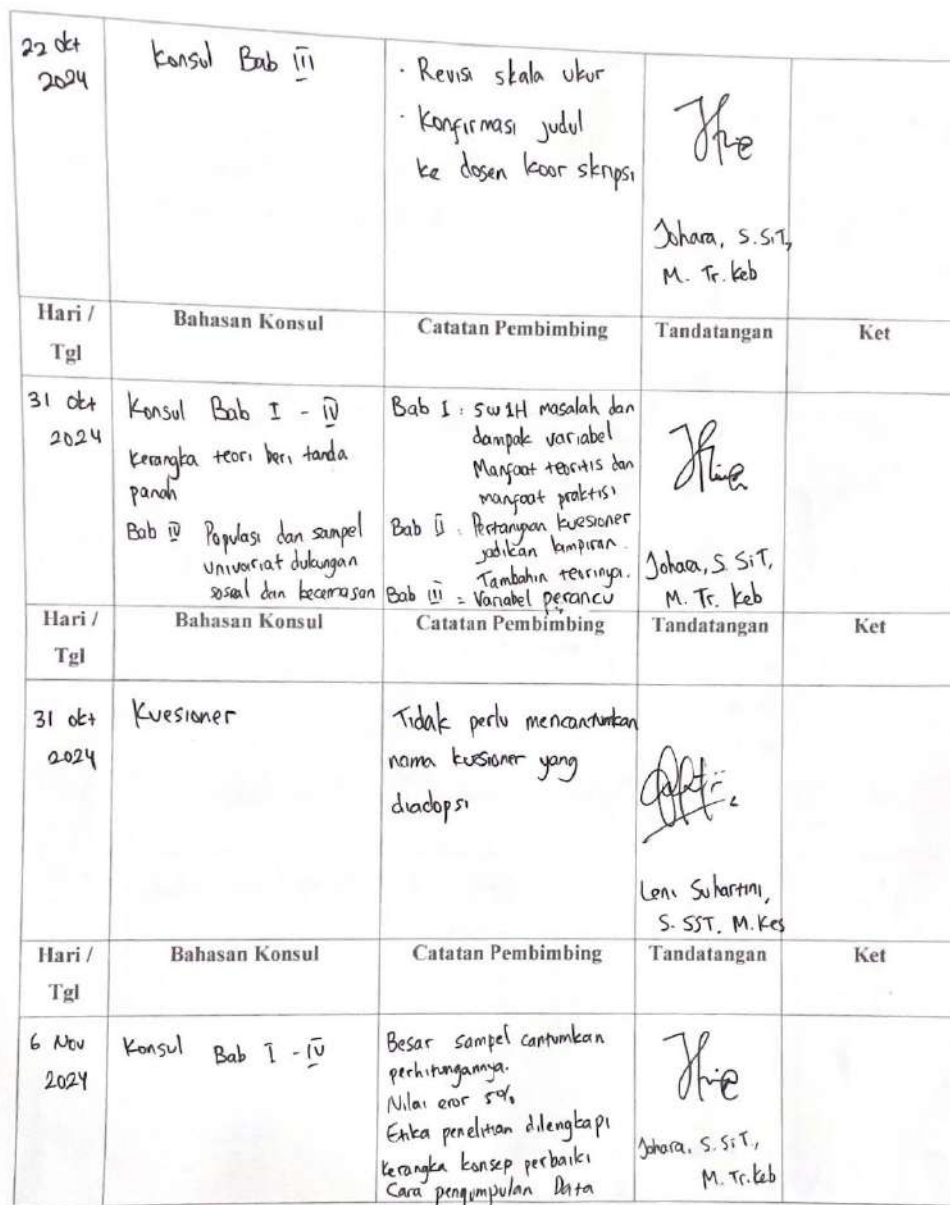 22 Okt
2024
Konsul Bab III
· Revisi skala ukur
· Konfirmasi judul
ke dosen koor skripsi
Johara, S.SiT,
M. Tr. Keb
Hari /
Tgl
Bahasan Konsul
Catatan Pembimbing
Tandatangan
Ket
31 Okt
2024
Konsul Bab I - IV
Kerangka teori beri tanda
panah
Bab IV Populasi dan sampel
univariat dukungan
sosial dan kecemasan
Bab I : 5W1H masalah dan
dampak variabel
Manfaat teoritis dan
manfaat praktisi
Bab II : Pertanyaan kuesioner
jadikan lampiran.
Tambahin teorinya.
Bab III = Variabel perancu
Johara, S. SiT,
M. Tr. Keb
Hari /
Tgl
Bahasan Konsul
Catatan Pembimbing
Tandatangan
Ket
31 Okt
2024
Kuesioner
Tidak perlu mencantumkan
nama kuesioner yang
diadopsi
Leni Suhartini,
S. SST, M.Kes
Hari /
Tgl
Bahasan Konsul
Catatan Pembimbing
Tandatangan
Ket
6 Nov
2024
Konsul Bab I - IV
Besar sampel cantumkan
perhitungannya.
Nilai eror 5%
Etika penelitian dilengkapi
Kerangka konsep perbaiki
Cara pengumpulan Data
Johara, S. SiT,
M. Tr. Keb